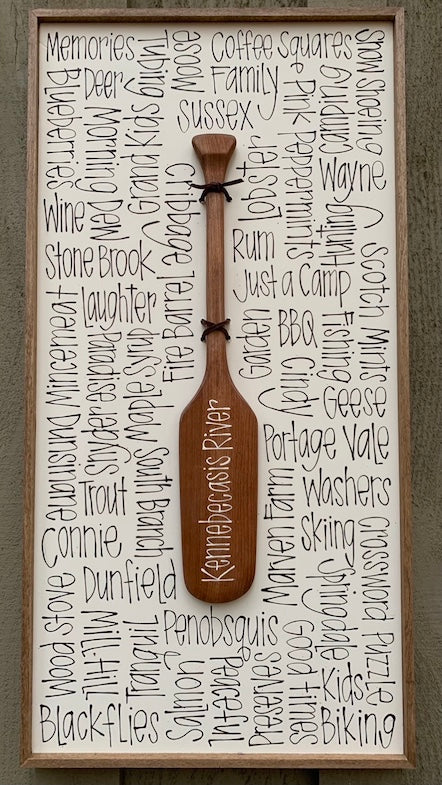 Memories
Tubing
Moose
Coffee Squares
Snow Shoeing
Blueberries
Deer
Family
&
Pink Peppermints
Camping
Sussex
Morning Dew
Grand Kids
Wayne
Lobster
Cribbage
Wine
Hunting
Rum
Stone Brook
Just a Camp
Scotch Mints
Laughter
Fire Barrel
Garden
BBQ
Fishing
Mincemeat
Snyder's Paradise
Maple Syrup
Cindy
Geese
Kennebecasis River
Portage Vale
Dunsinane
Trout
South Branch
Washers
Marven Farm
Skiing
Connie
Crossword Puzzle
Springdale
Dunfield
Wood Stove
Mill Hill
Tranquil
Penobsquis
Good Times
Salmon
Perfect
Preserves
Kids
Blackflies
Biking